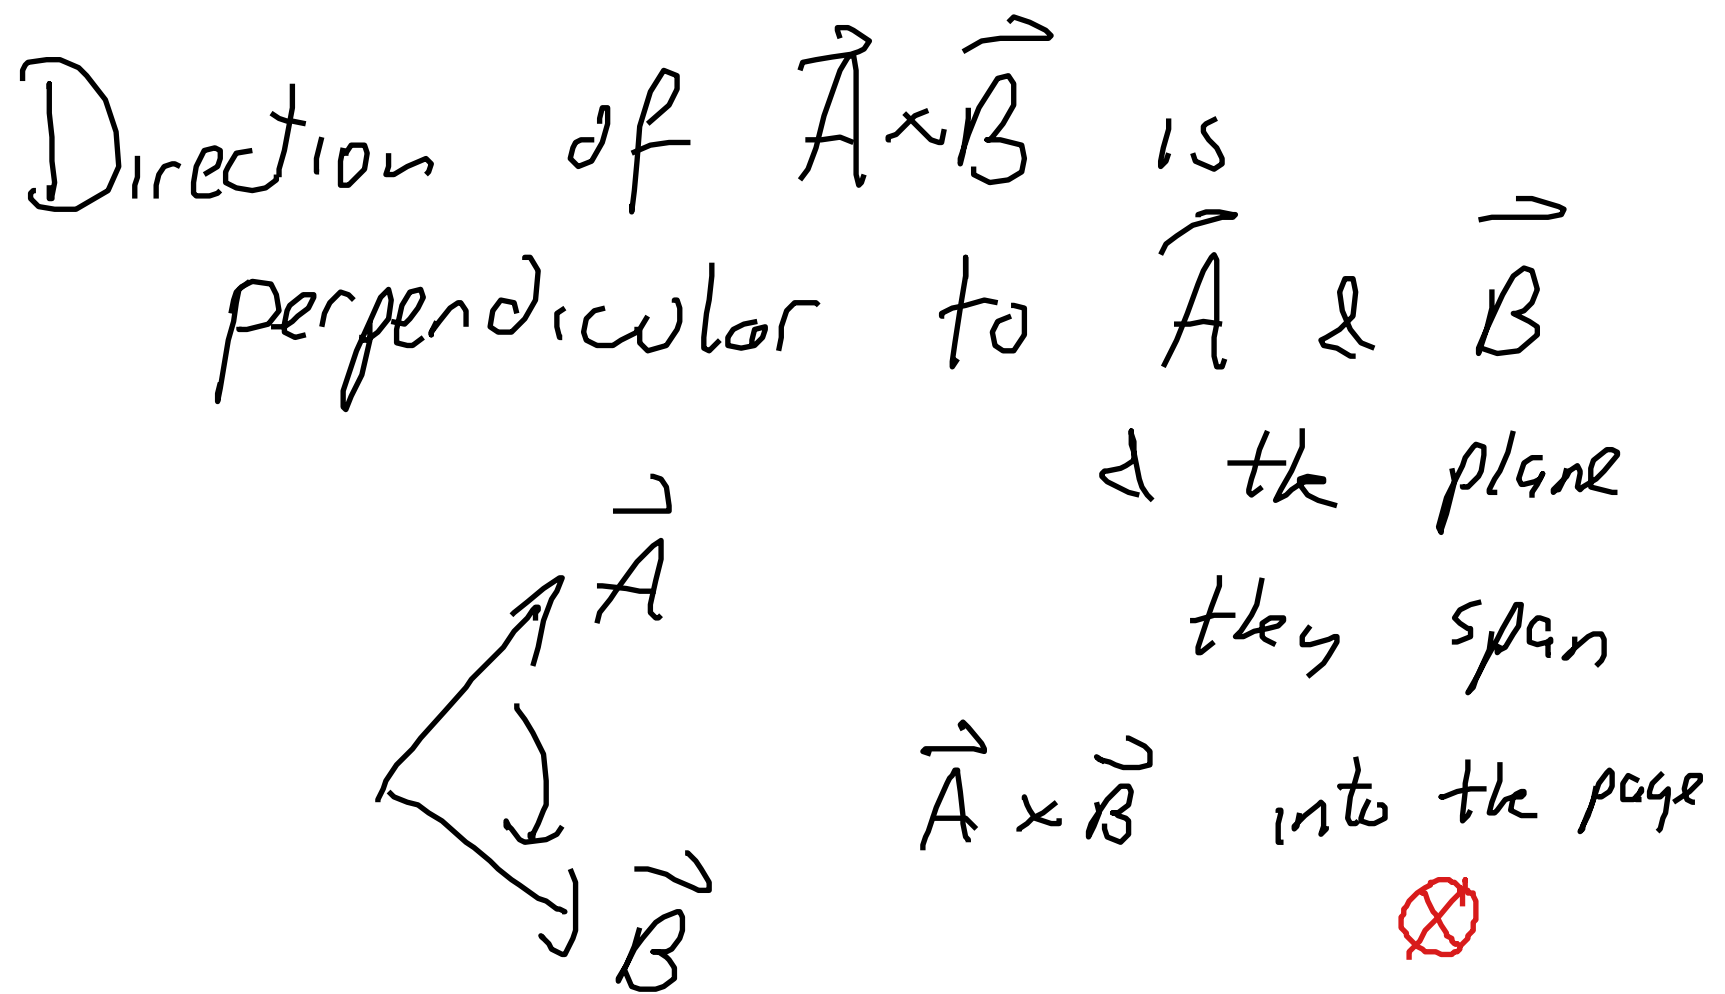 Direction of A⃗ × B⃗ is
perpendicular to A⃗ & B⃗
& the plane
they span
A⃗
A⃗ × B⃗ into the page
B⃗
⊗